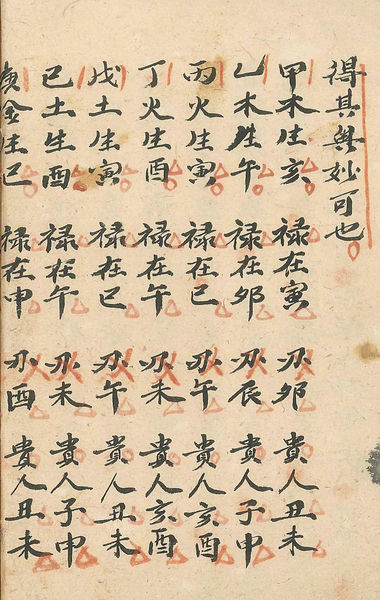 得其奧妙可也
甲木生亥 禄在寅 刃卯 貴人丑未
乙木生午 禄在卯 刃辰 貴人子申
丙火生寅 禄在巳 刃午 貴人亥酉
丁火生酉 禄在午 刃未 貴人亥酉
戊土生寅 禄在巳 刃午 貴人丑未
己土生酉 禄在午 刃未 貴人子申
庚金生巳 禄在申 刃酉 貴人丑未